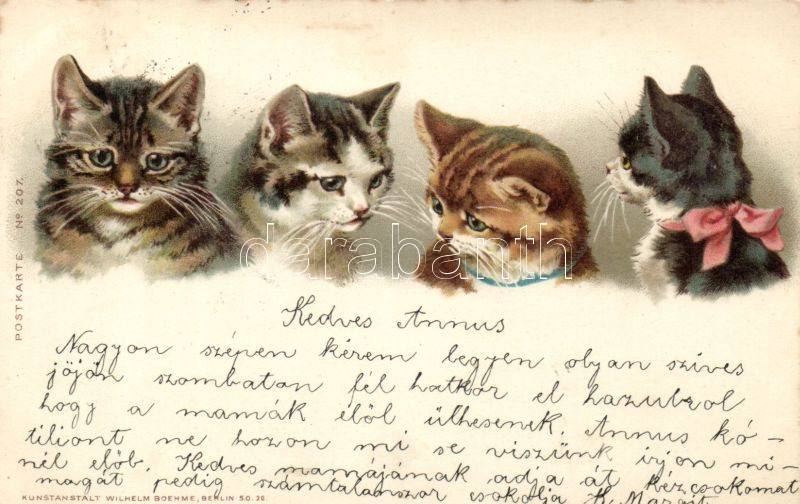 POSTKARTE Nº 207.
darabanth
Kedves Annus
Nagyon szépen kérem legyen olyan szives
jöjön szombaton fél hatkor el hazulrol
hogy a mamák elöl ülhesenek. Annus kó-
tiliont ne hozon mi se viszünk irjon mi-
nél elöb. Kedves mamájának adja át kézcsokomat
magát pedig számtalanszor csokolja K. Margit
KUNSTANSTALT WILHELM BOEHME, BERLIN S.O. 26.